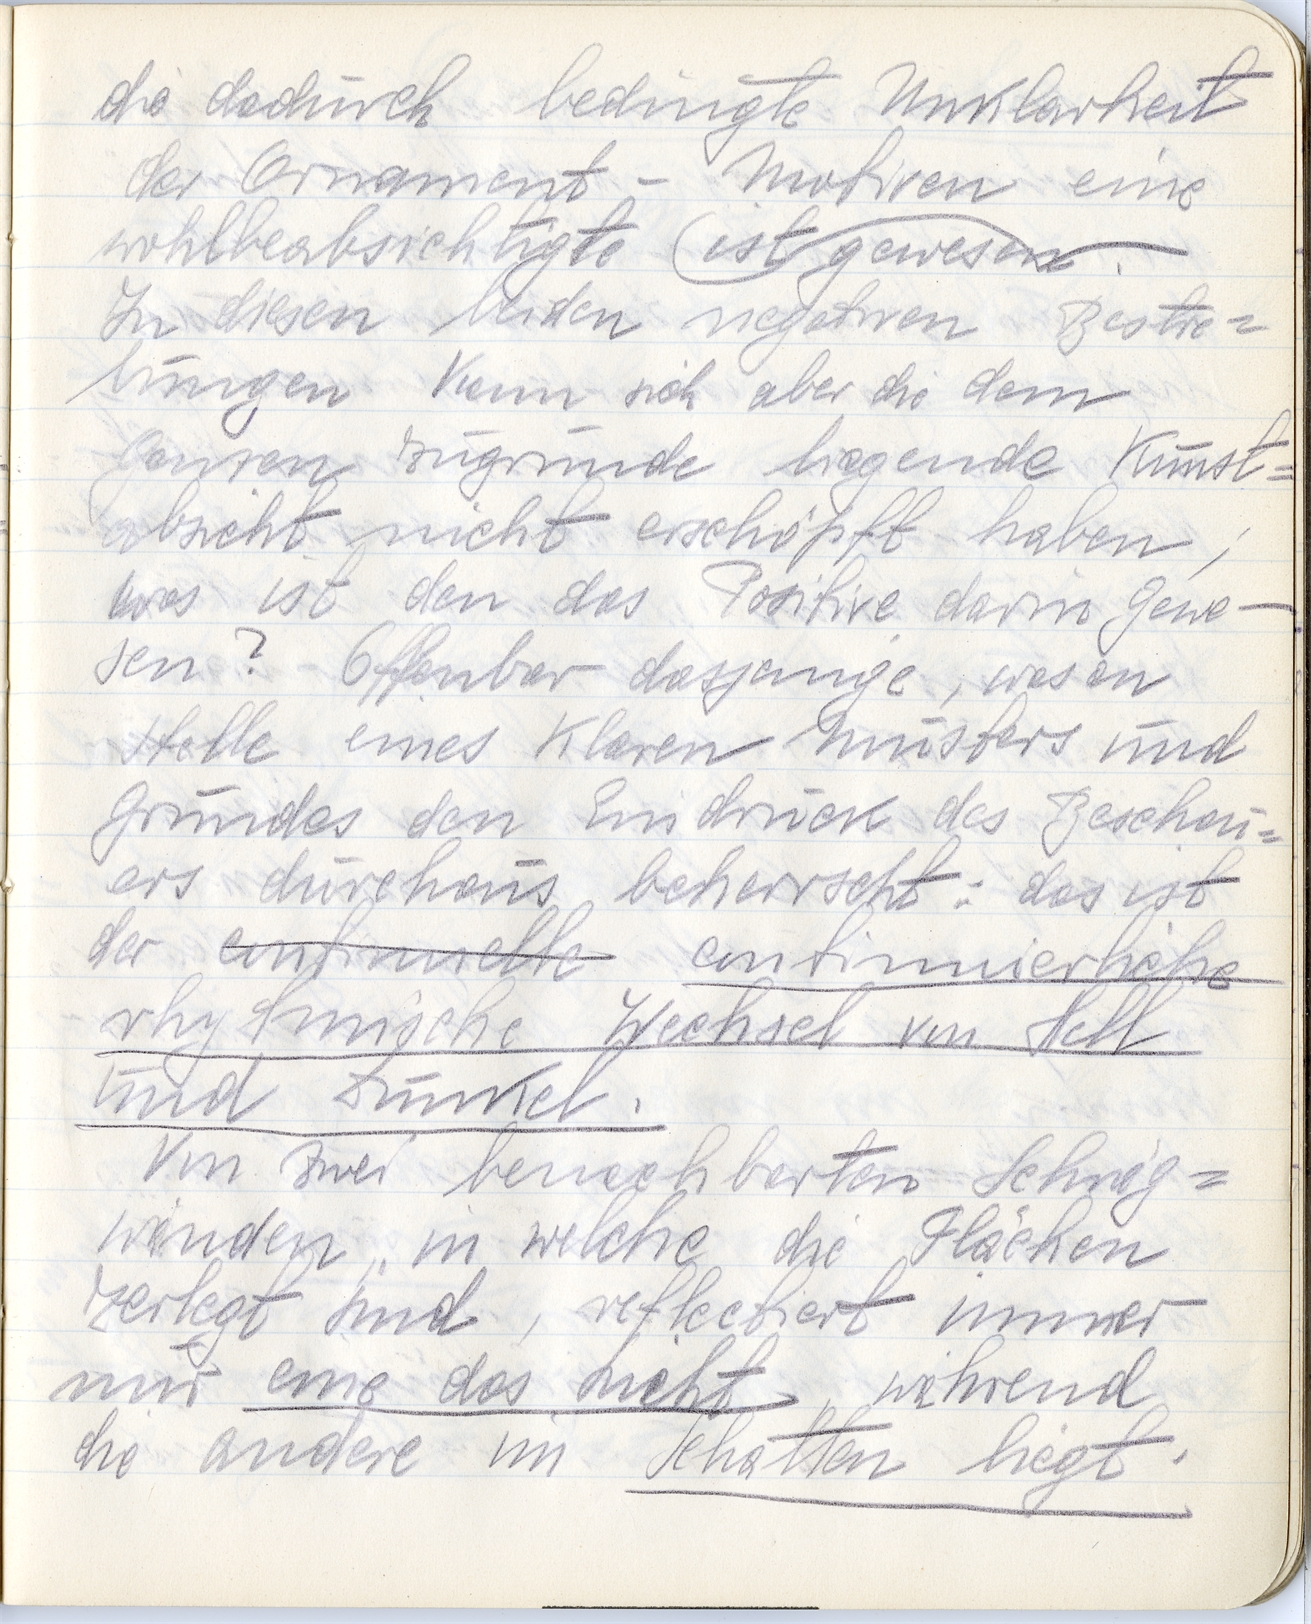 die dadurch bedingte Unklarheit
der Ornament - Motiven eine
wohlbeabsichtigte ist gewesen.
In diesen beiden negativen Bestre=
bungen kann sich aber die dem
Ganzen zugrunde liegende Kunst=
absicht nicht erschöpft haben,
was ist den das Positive darin gewe-
sen? - Offenbar dasjenige, was an
stelle eines klaren Musters und
Grundes den Eindruck des Beschau=
ers durchaus beherrscht: das ist
der continuelle continuierliche
rhytmische Wechsel von Hell
und Dunkel.
Von zwei benachbarten Schräg=
wänden, in welche die Flächen
zerlegt sind, reflectiert immer
nur eine das Licht, während
die andere im Schatten liegt.